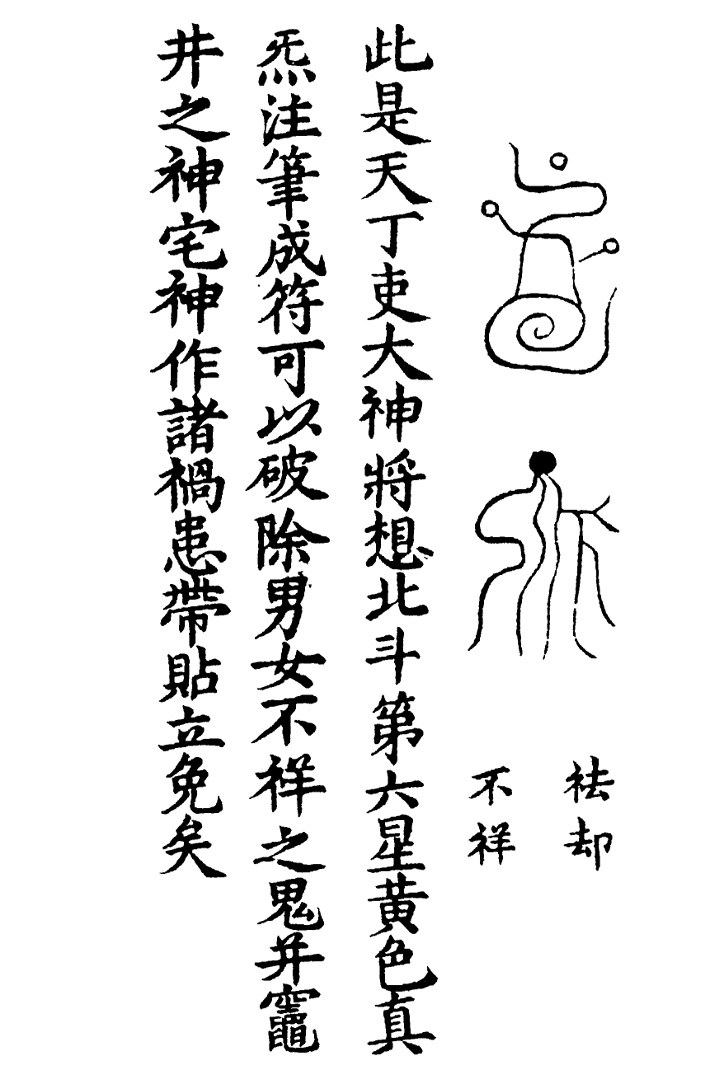 祛却
不祥
此是天丁吏大神將想北斗第六星黄色真
炁注筆成符可以破除男女不祥之鬼并竈
井之神宅神作諸禍患帶貼立免矣